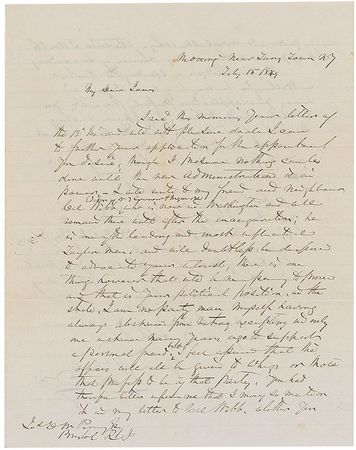 Morning Near Tarry Town NY
Feby 15 1849
My Dear James
I recd this morning your letter of
the 13th and will with pleasure do all I can
to further your application for the appointment
you desire, though I presume nothing can be
done until the new Administration is in
power. I will write to my friend and neighbour
Col Webb who is now in Washington and will
remain there until after the inauguration; he
is one of the leading and most influential
Taylor men and will doubtless be disposed
to advocate your interest, there is one
thing however that will be necessary to prove
and that is your political position in the
state. I am no party man myself having
always abstained from voting excepting in only
one instance many years ago to support
a personal friend. I feel afraid that the
offices will all be given to Whigs or those
that profess to be of that party. You had
therefore better inform me that I may so mention
it in my letter to Col Webb, whether you
Bristol R I